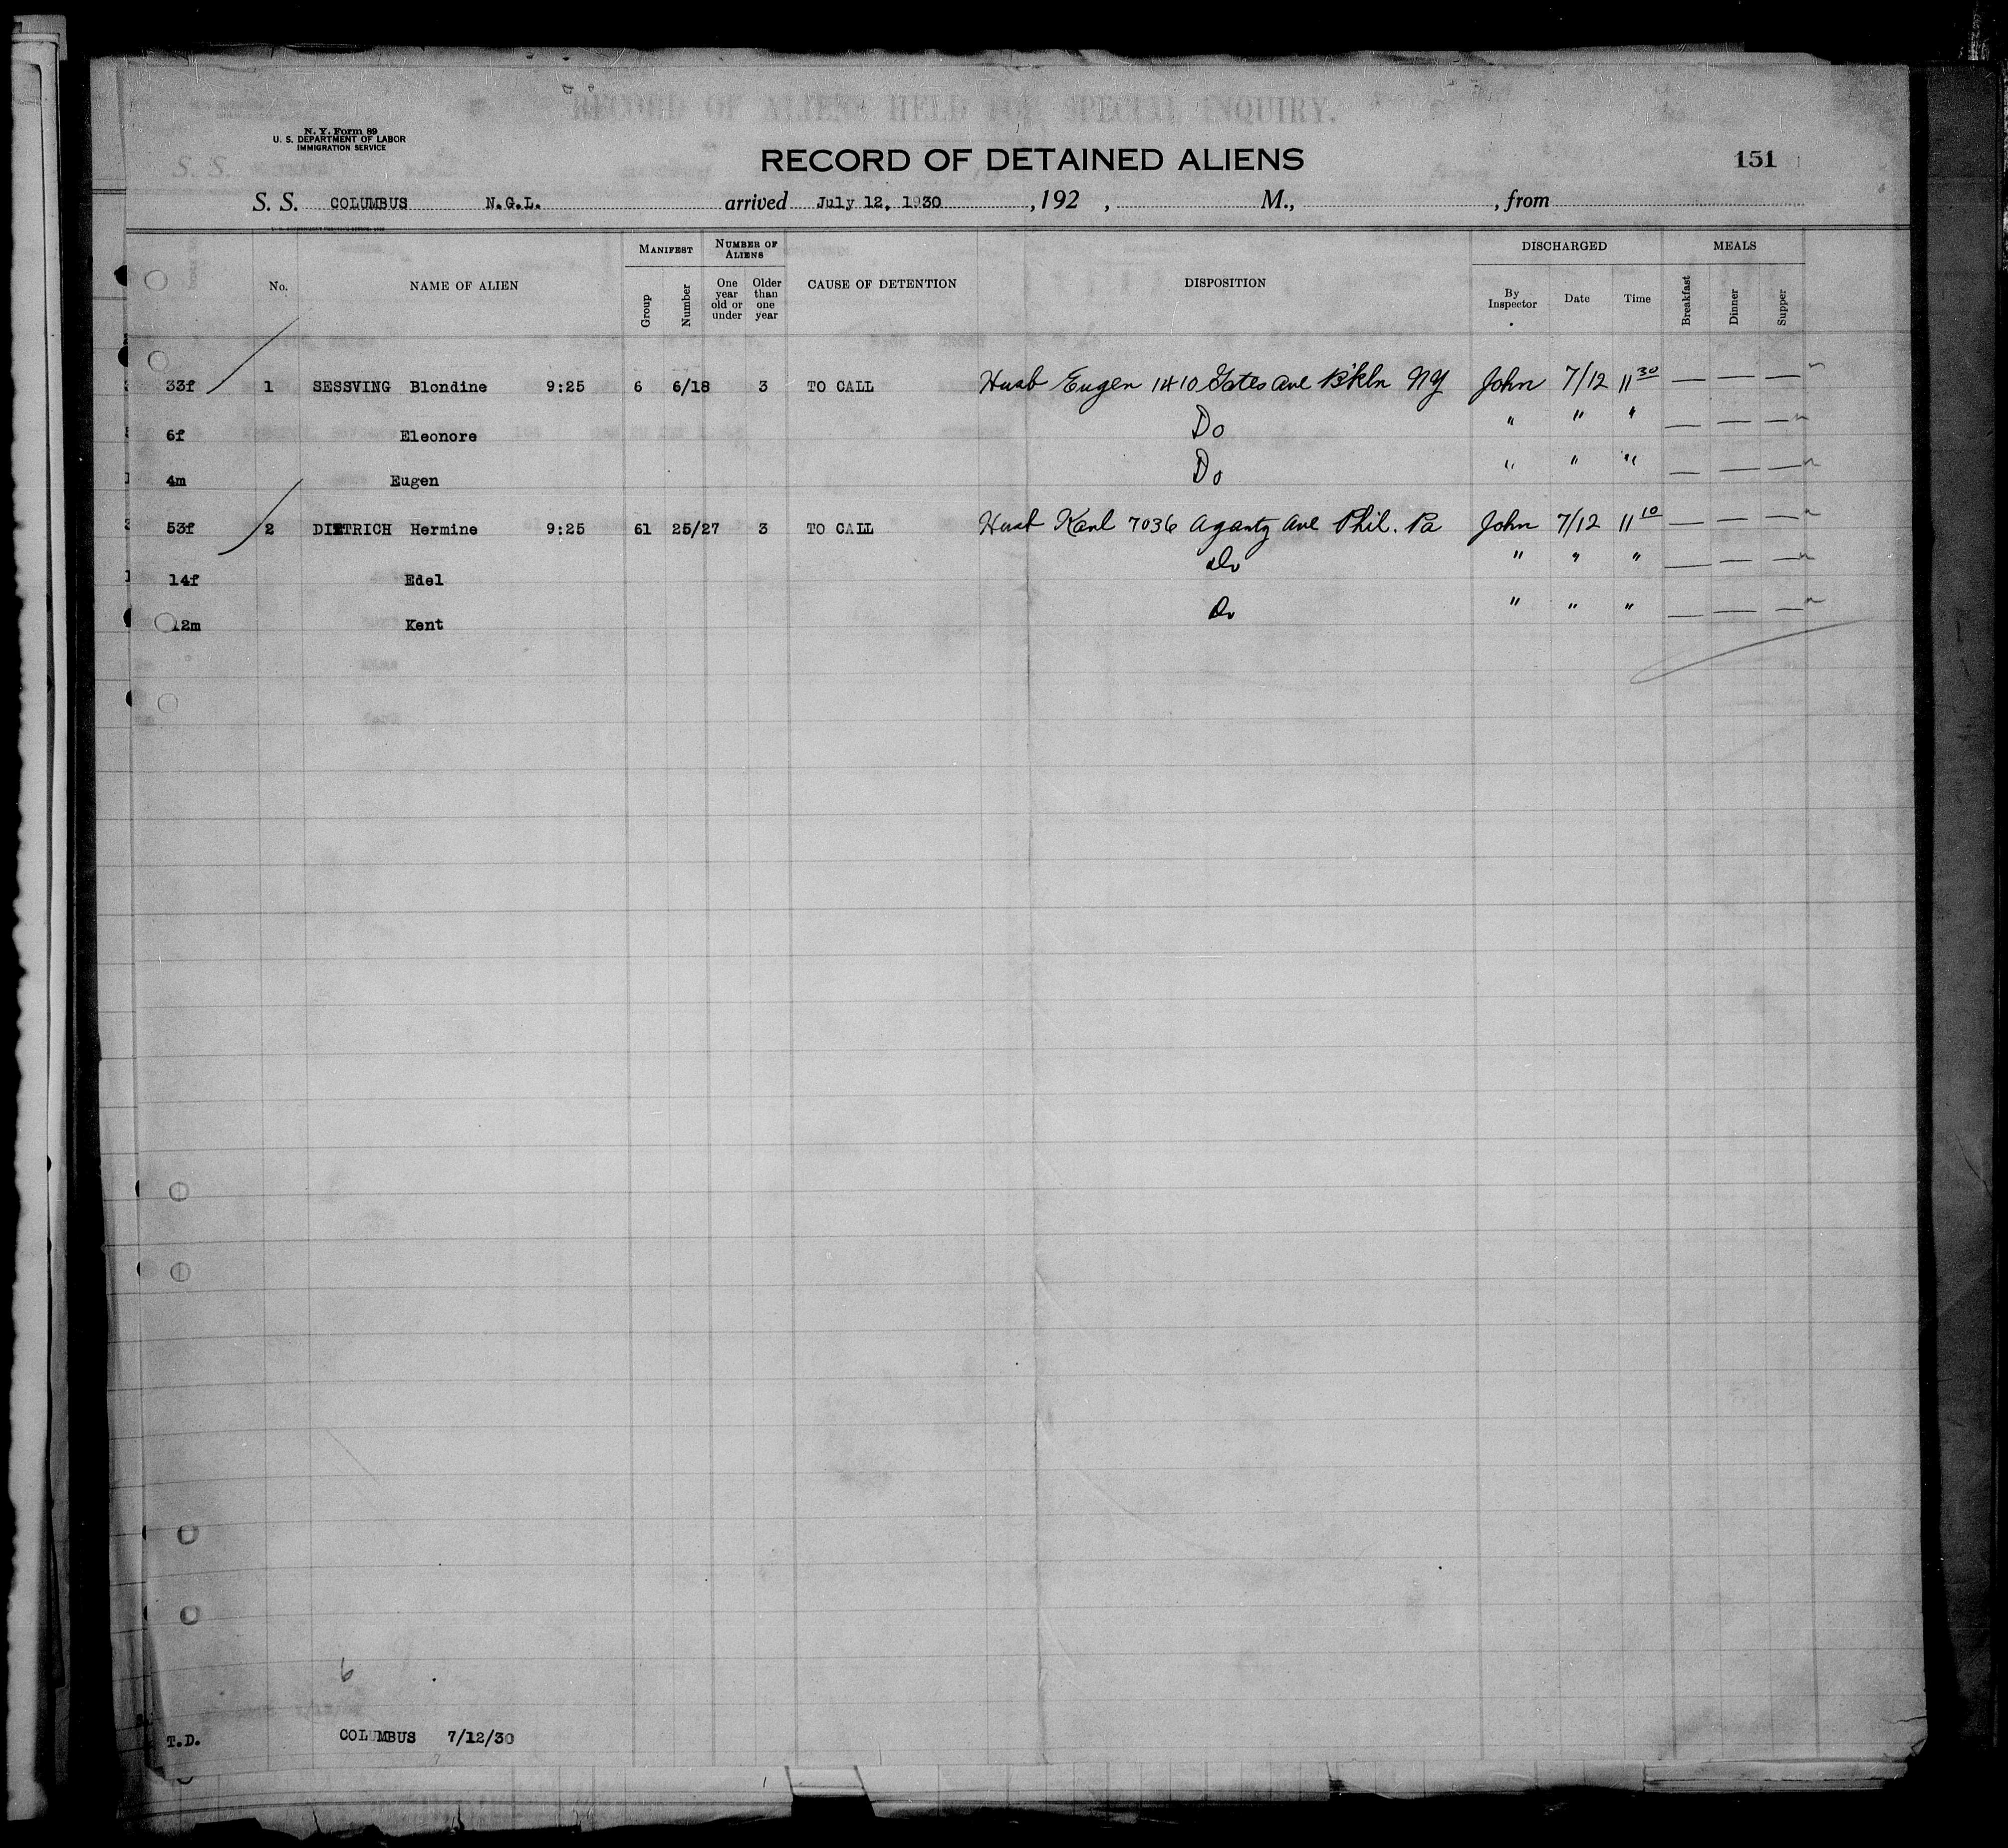 RECORD OF ALIENS HELD FOR SPECIAL INQUIRY.
N. Y. Form 89
U. S. DEPARTMENT OF LABOR
IMMIGRATION SERVICE
RECORD OF DETAINED ALIENS
151
S. S. COLUMBUS N.G.L. arrived July 12, 1930 , 192 , M., , from
MANIFEST NUMBER OF ALIENS DISCHARGED MEALS
No. NAME OF ALIEN Group Number One year old or under Older than one year CAUSE OF DETENTION DISPOSITION By Inspector Date Time Breakfast Dinner Supper
33f 1 SESSVING Blondine 9:25 6 6/18 3 TO CALL Husb Eugen 1410 Gates Ave B'kln NY John 7/12 11 30 — — —
6f Eleonore Do " " " — — —
4m Eugen Do " " " — — —
53f 2 DIETRICH Hermine 9:25 61 25/27 3 TO CALL Husb Karl 7036 Ave Phil. Pa John 7/12 11 10 — — —
14f Edel Do " " " — — —
12m Kent Do " " " — — —
6
T.D. COLUMBUS 7/12/30